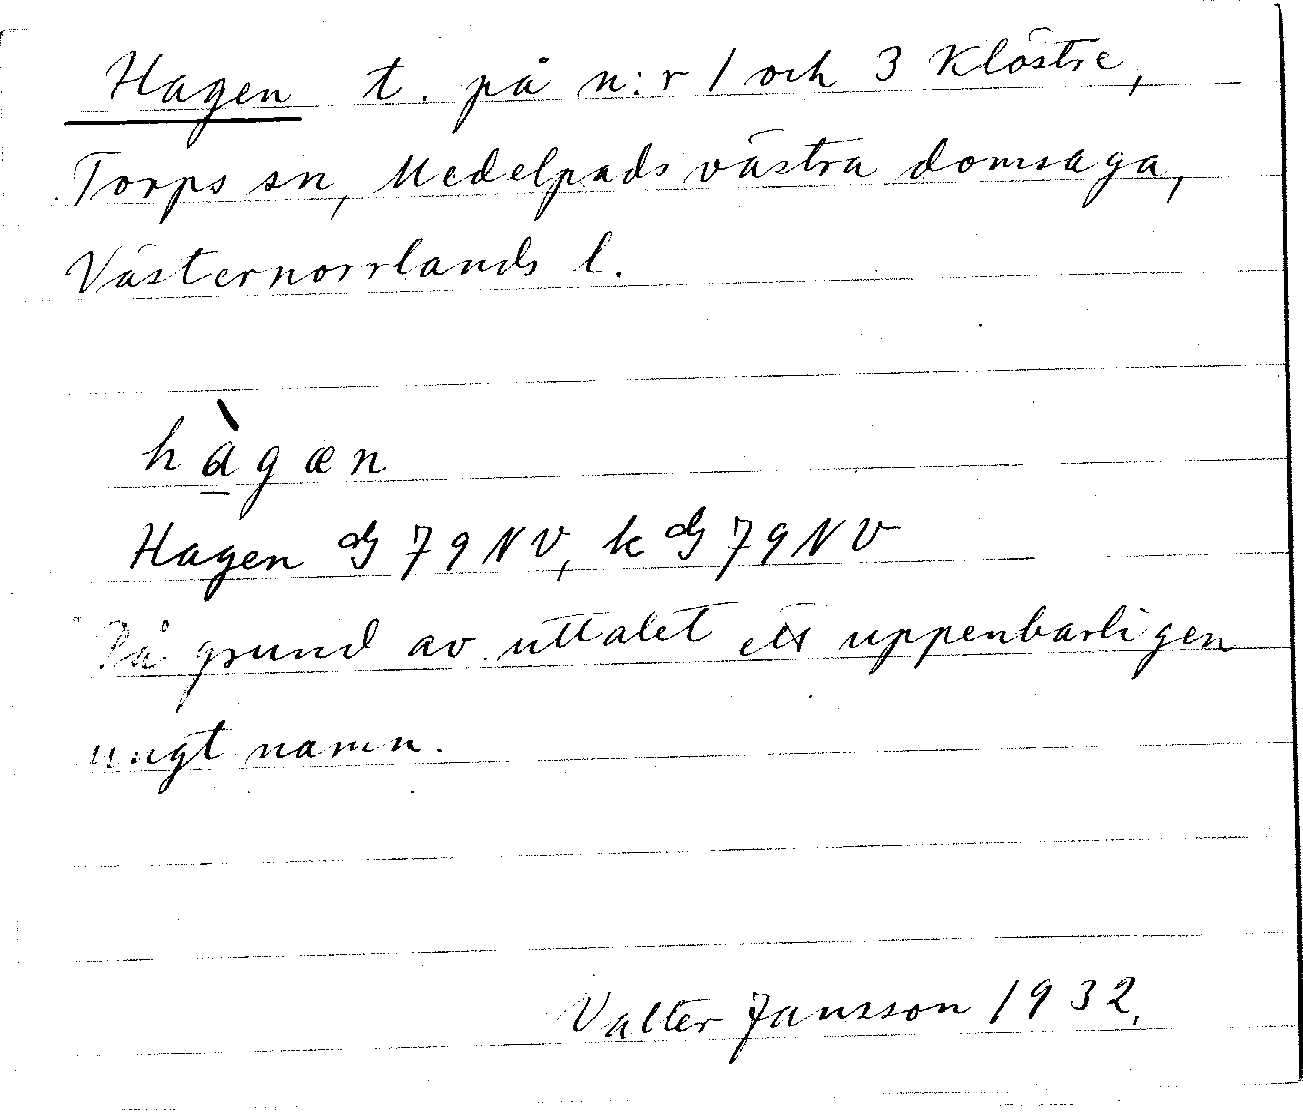 Hagen t. på n:r 1 och 3 Klöstre,
Torps sn, Medelpads västra domsaga,
Västernorrlands l.
hàgæn
Hagen G 79 NV, k G 79 NV
På grund av uttalet ett uppenbarligen
ungt namn.
Valter Jansson 1932.